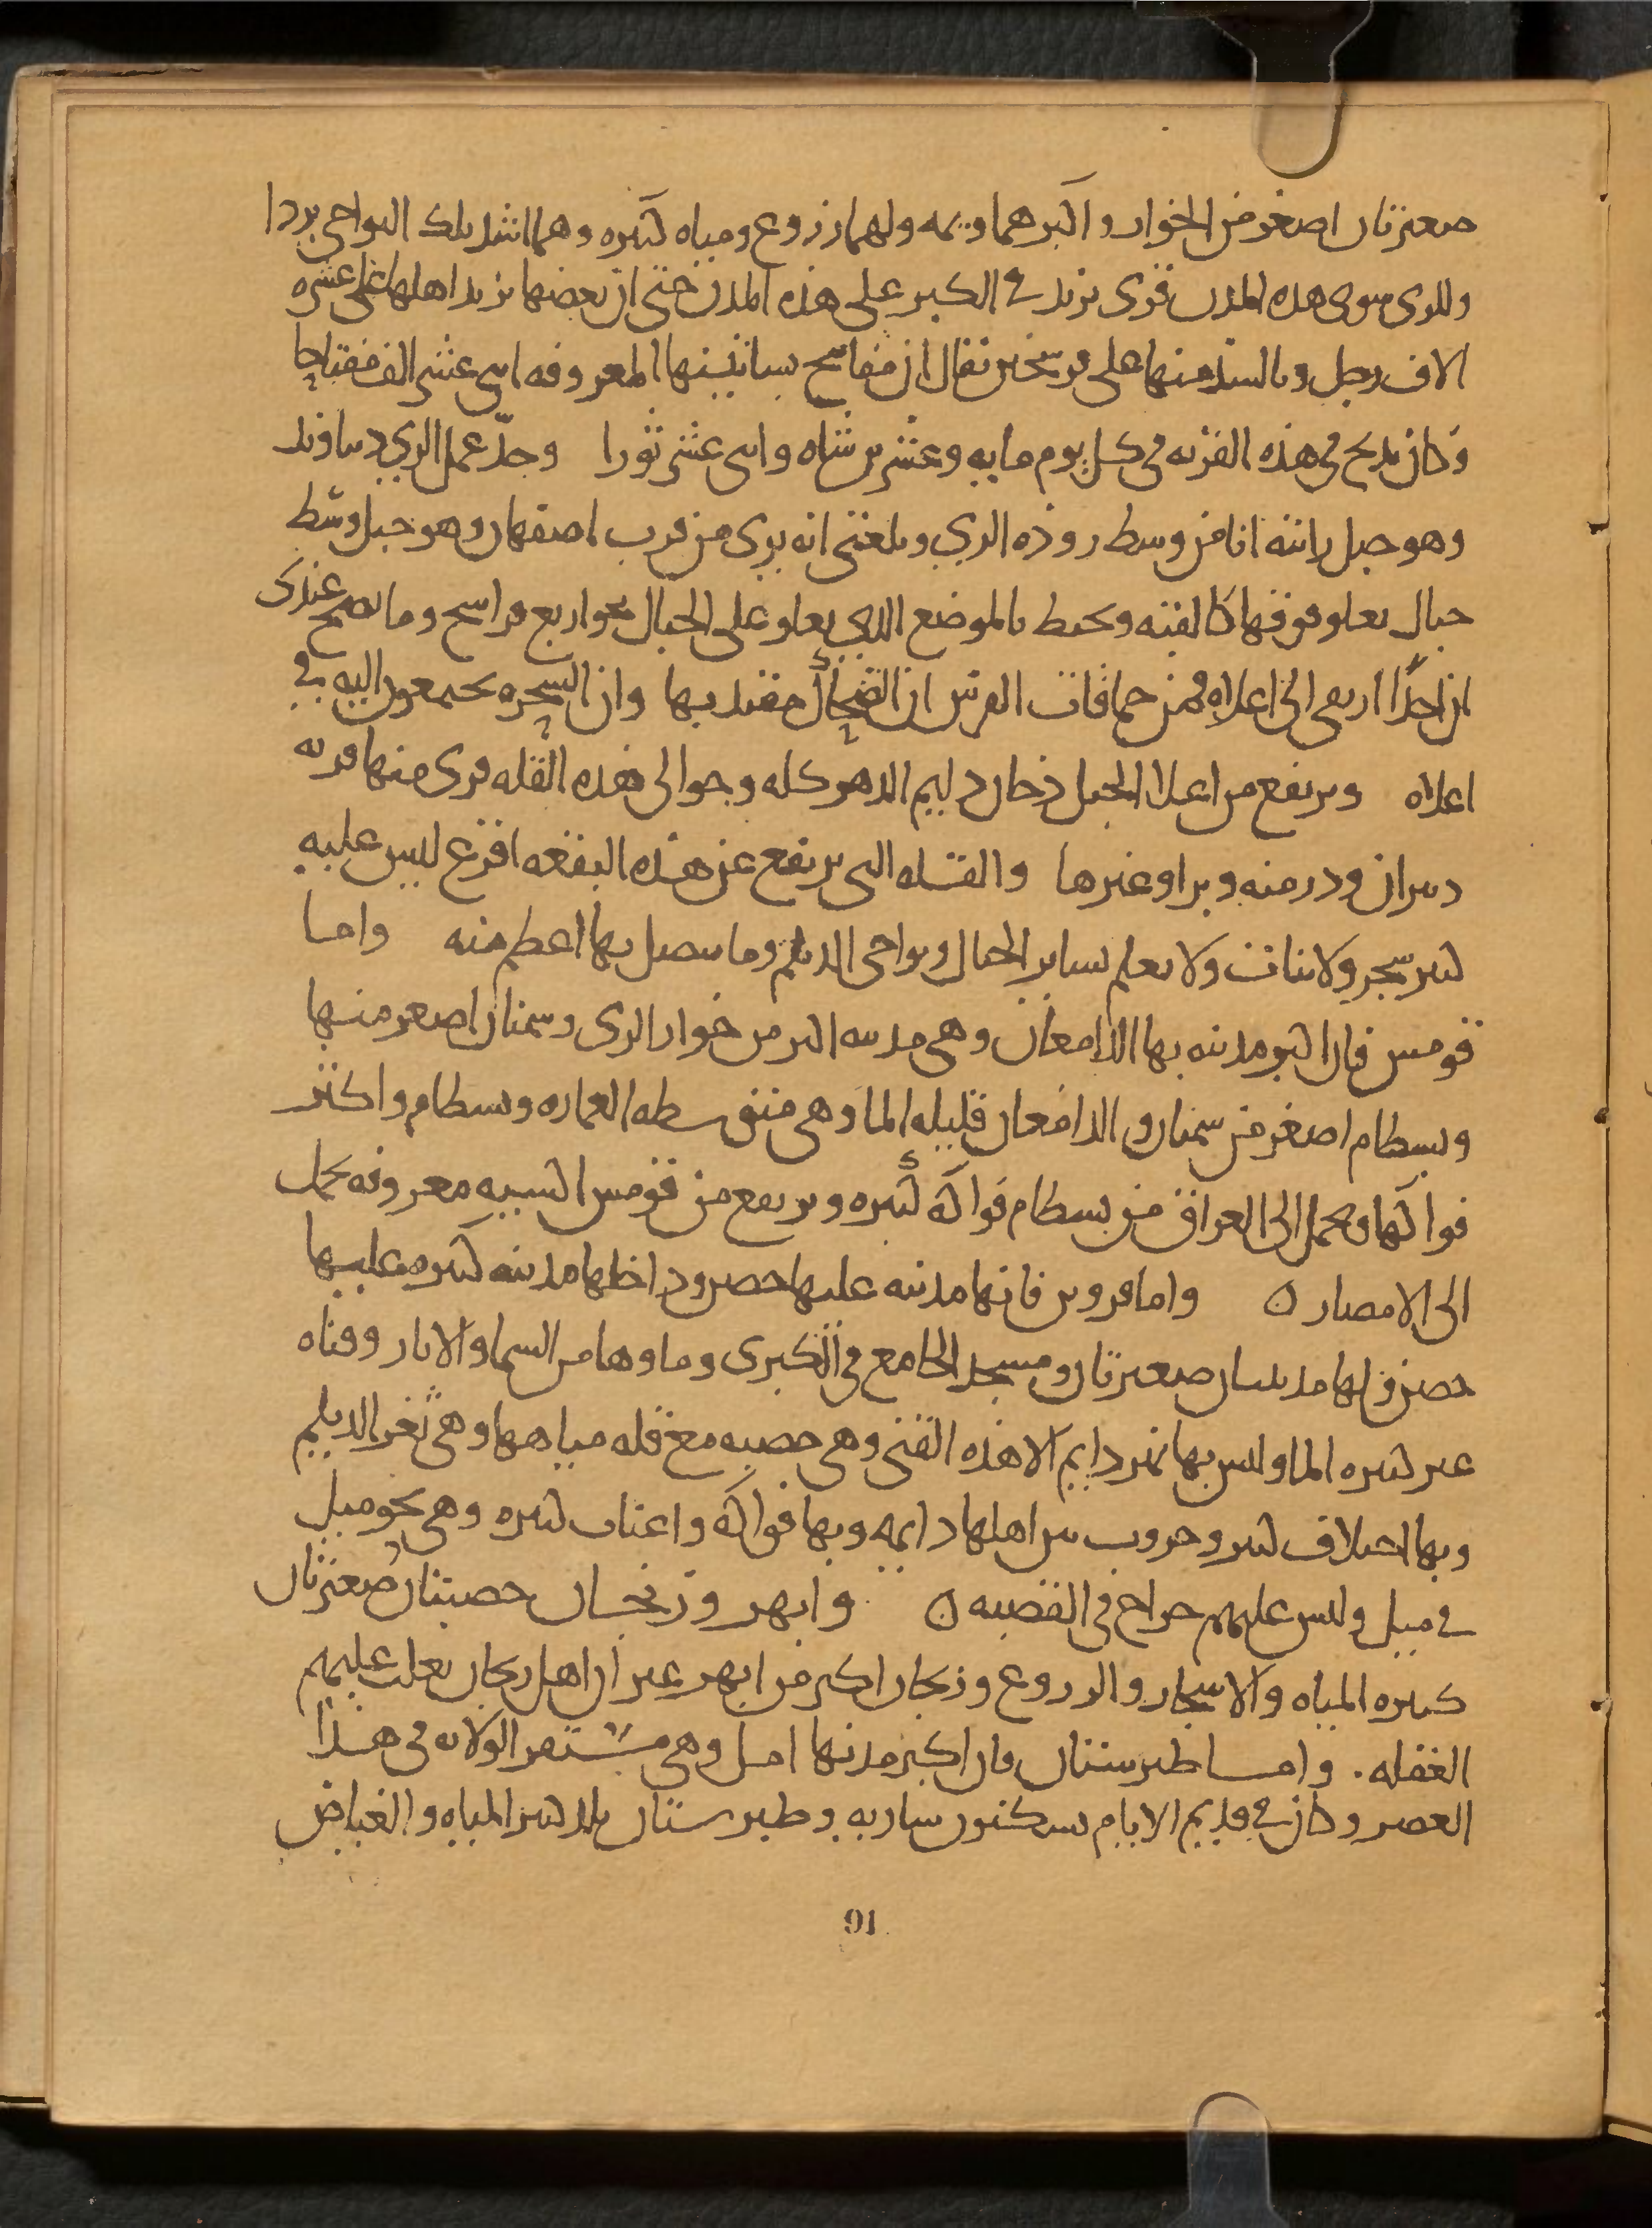 صغيرتان اصغر من الخوار واكبرهما ويمه ولهما زروع ومياه كثيره وهما اشد تلك النواحي بردا
وللري سوى هذه المدن قرى تزيد في الكبر على هذه المدن حتى ان بعضها يزيد اهلها على عشره
الاف رجل وبالسد منها على فرسخين يقال ان مفاتيح بساتينها المعروفه اثنى عشر الف مفتاحا
وكان يذبح في هذه القريه في كل يوم مايه وعشرين شاه واثنى عشر ثورا وحدّ عمل الري دنباوند
وهو جبل رايته انا من وسط روذه الري وبلغني انه يرى من قرب اصفهان وهو جبل وسط
جبال يعلو فوقها كالقبه ويحيط بالموضع الذي يعلو على الجبال نحو اربع فراسخ وما يصح عندى
ان احدًا ارتقى الى اعلاه فمن حماقات الفرس ان الضحاك مقيد بها وان السحره يجتمعون اليه في
اعلاه ويرتفع من اعلا الجبل دخان دايم الدهر كله وحوالى هذه القله قرى منها قريه
دبيران ودرمنه وبرا وغيرها والقله التى يرتفع عن هذه البقعه اقرع ليس عليه
كثير شجر ولا نبات ولا يعلم بساير الجبال ونواحى الديلم وما يتصل بها اعظم منه واما
قومس فان اكبر مدينه بها الدامغان وهى مدينه اكبر من خوار الرى وسمنان اصغر منها
وبسطام اصغر من سمنان والدامغان قليله الما وهى متوسطه العماره وبسطام واكثر
فواكها ويحمل الى العراق من بسطام فواكه كثيره ويرتفع من قومس اكسيه معروفه تحمل
الى الامصار ه واما قزوين فانها مدينه عليها حصن وداخلها مدينه كثيره عليها
حصن ولها مدينتان صغيرتان ومسجد الجامع في الكبرى وماوها من السما والابار وقناه
غير كثيره الما وليس بها نهر دايم الا هذه القنى وهى خصبه مع قله مياهها وهى ثغر الديلم
وبها اختلاف كثير وحروب بين اهلها دايمه وبها فواكه واعناب كثيره وهى نحو ميل
في ميل وليس عليهم خراج في القصبه ه وابهر وزنجان خصبتان صغيرتان
كثيره المياه والاشجار والزروع وزنجان اكبر من ابهر غير ان اهل زنجان تغلب عليهم
الغفله . واما طبرستان فان اكبر مدنها امل وهى مستقر الولاه في هذا
العصر وكان في قديم الايام يسكنون ساريه وطبرستان بلد كثير المياه والغياض
91